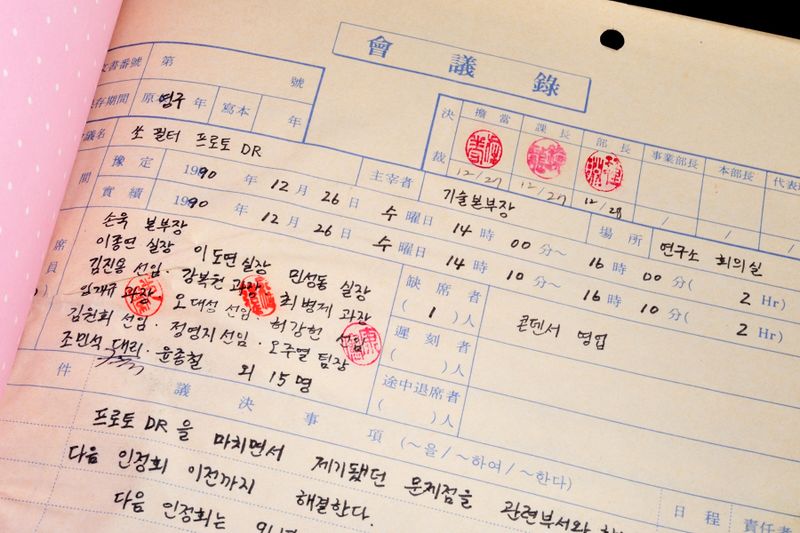 會議錄
文書番號 第 號
保存期間 原 영구 年 寫本 年
決裁 擔當 課長 部長 事業部長 本部長 代表
12/27 12/27 12/28 / / /
會議名 쏘 필터 프로토 DR
豫定 1990 年 12 月 26 日 수 曜日 14 時 00 分~ 16 時 00 分( 2 Hr)
主宰者 기술본부장 場所 연구소 회의실
間 實績 1990 年 12 月 26 日 수 曜日 14 時 10 分~ 16 時 10 分( 2 Hr)
席員
손욱 본부장
이종연 실장 이도면 실장 민성동 실장
김진용 선임. 강복현 과장 최병제 과장
과장 오대성 선임. 허강헌 선임
김현희 선임. 정영지 선임. 오주열 팀장
조민석 대리. 윤종철 외 15명
缺席者 ( 1 )人 콘덴서 영업
遲刻者 ( )人
途中退席者 ( )人
件 議決事項 (~을/~하여/~한다) 日程 責任者
프로토 DR을 마치면서 제기됐던 문제점을 관련부서와
다음 인정회 이전까지 해결한다.
다음 인정회는